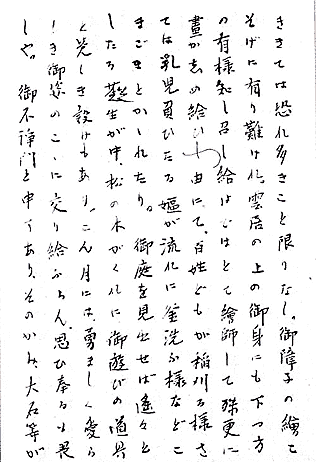 きては恐れ多きこと限りなし。御障子の繪こ
そげに有り難けれ。雲居の上の御身にも下つ方
の有樣知し召し給はではとて繪師して殊更に
畫かしめ給ひし由にて、百姓どもが稲刈る樣さ
ては乳児負ひたる嫗が流れに釜洗ふ樣などこ
まごまとかかれたり。御庭を見出せば遙々と
したる芝生が中、松の木がくれに御遊びの道具
と覚しき設けもあり。こん月には勇ましく愛ら
しき御姿のここに交り給ふらん、思ひ奉るも畏
しや。御不浄門と申すあり、そのかみ大石等が